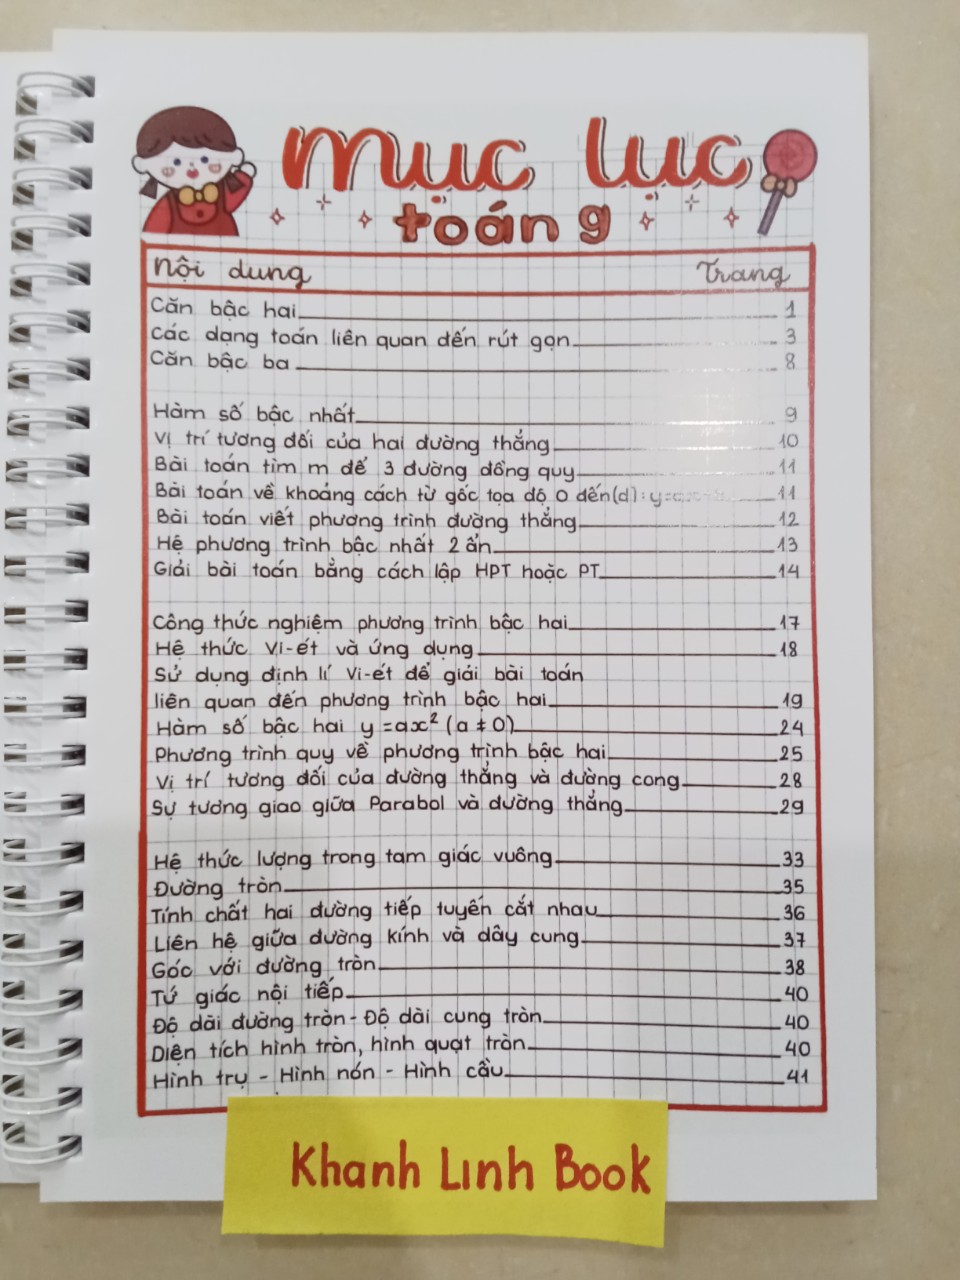 mục lục
toán 9
Nội dung Trang
Căn bậc hai 1
Các dạng toán liên quan đến rút gọn 3
Căn bậc ba 8
Hàm số bậc nhất 9
Vị trí tương đối của hai đường thẳng 10
Bài toán tìm m để 3 đường đồng quy 11
Bài toán về khoảng cách từ gốc tọa độ O đến (d): 11
Bài toán viết phương trình đường thẳng 12
Hệ phương trình bậc nhất 2 ẩn 13
Giải bài toán bằng cách lập HPT hoặc PT 14
Công thức nghiệm phương trình bậc hai 17
Hệ thức Vi-ét và ứng dụng 18
Sử dụng định lí Vi-ét để giải bài toán
liên quan đến phương trình bậc hai 19
Hàm số bậc hai y = ax² (a ≠ 0) 24
Phương trình quy về phương trình bậc hai 25
Vị trí tương đối của đường thẳng và đường cong 28
Sự tương giao giữa Parabol và đường thẳng 29
Hệ thức lượng trong tam giác vuông 33
Đường tròn 35
Tính chất hai đường tiếp tuyến cắt nhau 36
Liên hệ giữa đường kính và dây cung 37
Góc với đường tròn 38
Tứ giác nội tiếp 40
Độ dài đường tròn - Độ dài cung tròn 40
Diện tích hình tròn, hình quạt tròn 40
Hình trụ - Hình nón - Hình cầu 41
Khanh Linh Book